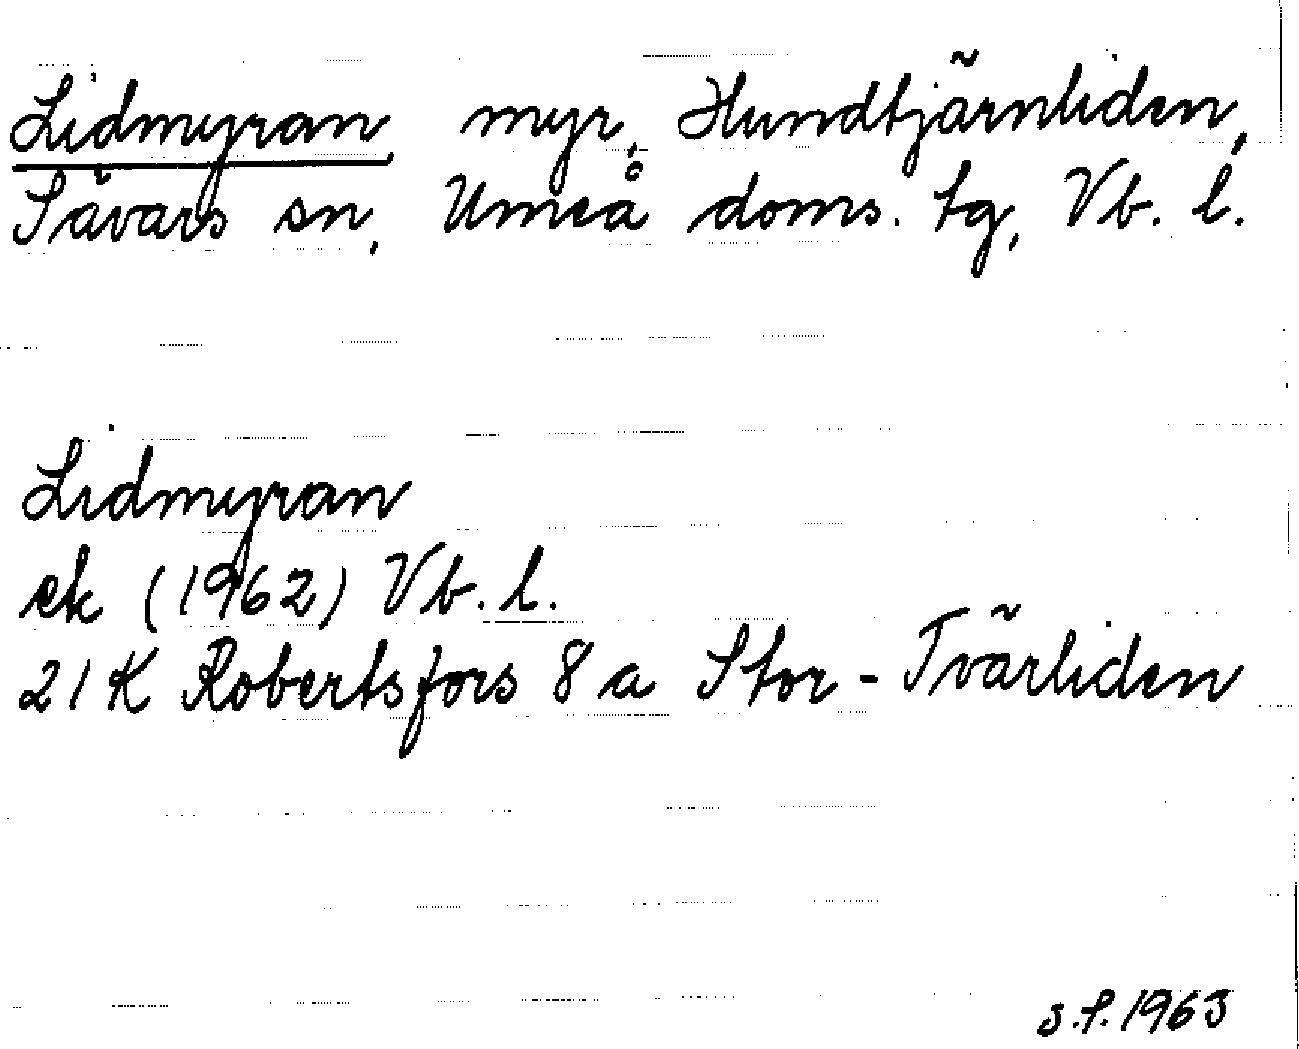 Lidmyran myr, Hundtjärnliden,
Sävars sn, Umeå doms. tg, Vb. l.
Lidmyran
ek (1962) Vb. l.
21K Robertsfors 8a Stor-Tvärliden
s.f. 1963